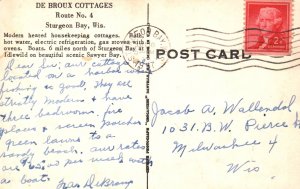 DE BROUX COTTAGES
Route No. 4
Sturgeon Bay, Wis.
Modern heated housekeeping cottages. Bath,
hot water, electric refrigeration, gas stoves with
ovens. Boats. 6 miles north of Sturgeon Bay at
Idlewild on beautiful scenic Sawyer Bay.
POST CARD
Dear Sir, our cottages
located on a harbor where
fishing is good. They are
strictly modern & have
three bedrooms, fire
place & screen porches
green lawns to a
sandy beach. our rates
are per week with
a boat.
Mrs DeBroux
Jacob A. Wallendal
1031. B. W. Pierce
Milwaukee 4
Wis
2¢